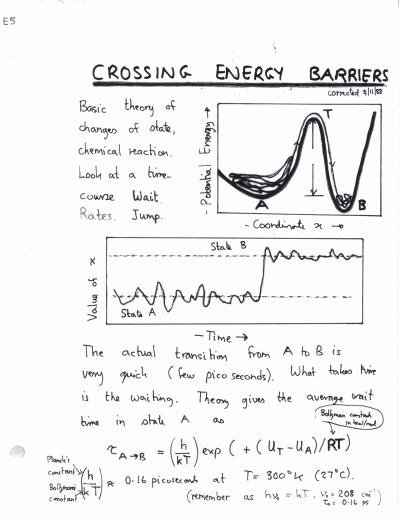 E5
CROSSING ENERGY BARRIERS
corrected 3/11/88
Basic theory of
changes of state,
chemical reaction.
Look at a time-
course Wait.
Rates. Jump.
- Potential Energy →
T
A
B
- Coordinate x →
State B
Value of x
State A
- Time →
The actual transition from A to B is
very quick (few pico seconds). What takes time
is the waiting. Theory gives the average wait
time in state A as
Boltzmann constant
in kcal/mol
τA→B = (h/kT) exp ( + (UT - UA)/RT)
Planck's
constant
Boltzmann
constant
(h/kT) ≈ 0.16 picoseconds at T= 300°K (27°C).
(remember as hν₀ = kT, ν₀ = 208 cm⁻¹
τ₀ = 0.16 ps